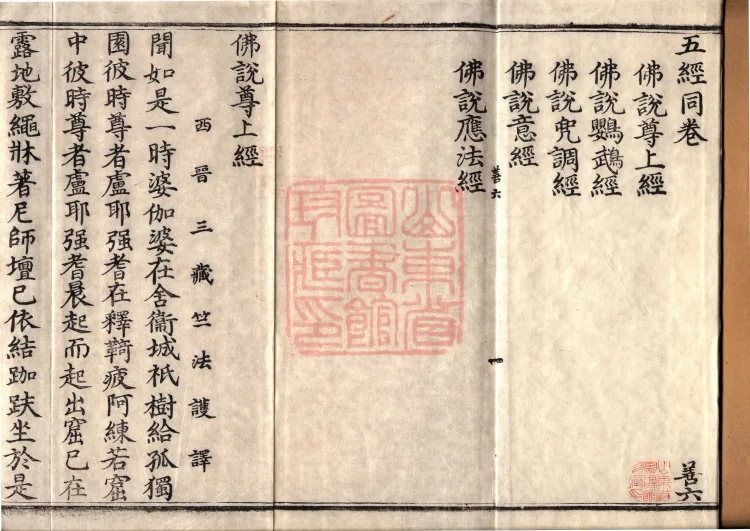 五經同卷
善六
佛說尊上經
佛說鸚鵡經
佛說兜調經
佛說意經
佛說應法經
善六
一
山東省
圖書館
收藏印
佛說尊上經
西晉三藏竺法護譯
聞如是一時婆伽婆在舍衞城祇樹給孤獨
園彼時尊者盧耶强耆在釋鞫疲阿練若窟
中彼時尊者盧耶强耆晨起而起出窟已在
露地敷繩牀著尼師壇已依結跏趺坐於是